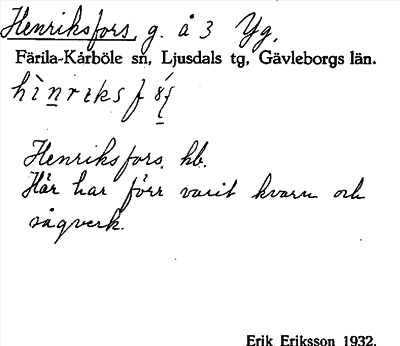 Henriksfors, g. å 3 Yg.
Färila-Kårböle sn, Ljusdals tg, Gävleborgs län.
Henriksfors, hb.
Här har förr varit kvarn och
sågverk.
Erik Eriksson 1932.